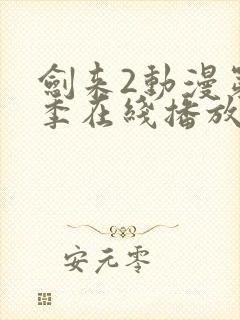 劍來2動漫
季在綫播放
安元零